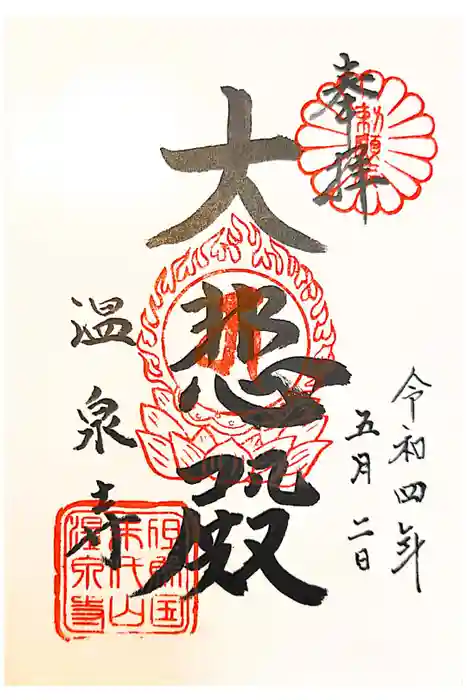 奉拝
勅願
令和四年
五月二日
大悲殿
温泉寺
但馬国
末代山
温泉寺